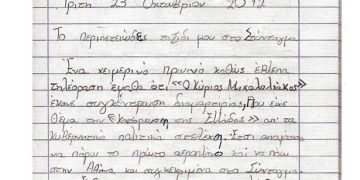 Τρίτη 23 Οκτωβρίου 2012
Το περιπετειώδες ταξίδι μου στο Σύνταγμα
Ένα χειμερινό πρωινό καθώς έβλεπα
τηλεόραση έμαθα ότι «Ο κύριος Μιχαλολιάκος»
έκανε συγκέντρωση διαμαρτυρίας, που είχε
θέμα την «κατάρρευση της Ελλάδος» απ' τα
κυβερνητικά πολιτικά στελέχη. Έτσι αποφάσισα
να πάρω το πρώτο αεροπλάνο και να πάω
στην Αθήνα και συγκεκριμένα στο Σύνταγμα.